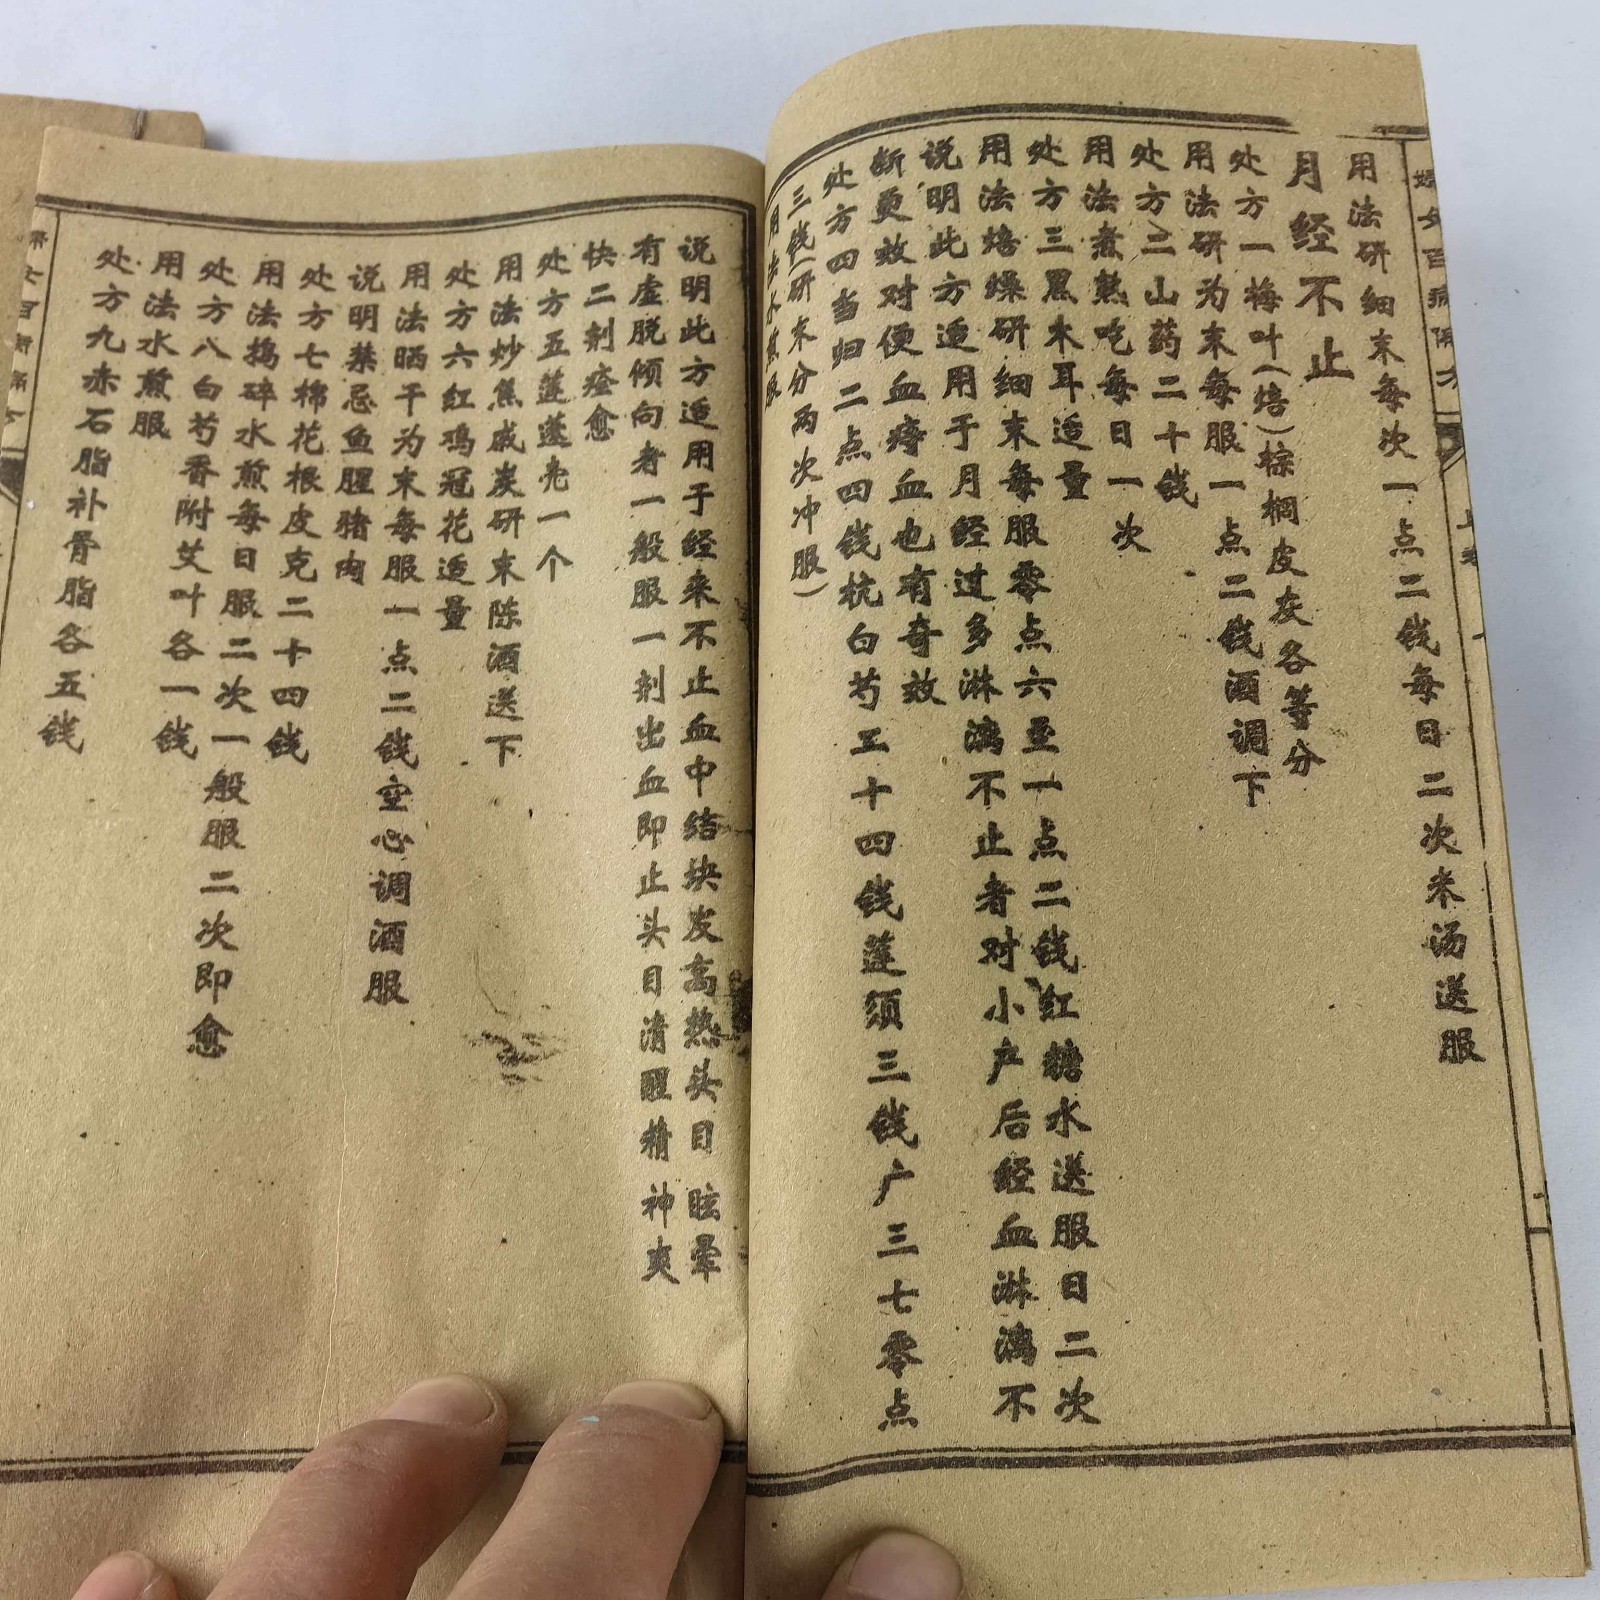 妇女百病偏方
上卷
用法研细末每次一点二钱每日二次米汤送服
月经不止
处方一梅叶(焙)棕榈皮灰各等分
用法研为末每服一点二钱酒调下
处方二山药二十钱
用法煮熟吃每日一次
处方三黑木耳适量
用法焙燥研细末每服零点六至一点二钱红糖水送服日二次
说明此方适用于月经过多淋漓不止者对小产后经血淋漓不
断更效对便血痔血也有奇效
处方四当归二点四钱杭白芍二十四钱莲须三钱广三七零点
三钱(研末分两次冲服)
用法水煎服
说明此方适用于经来不止血中结块发高热头目眩晕
有虚脱倾向者一般服一剂出血即止头目清醒精神爽
快二剂痊愈
处方五莲蓬壳一个
用法炒焦成炭研末陈酒送下
处方六红鸡冠花适量
用法晒干为末每服一点二钱空心调酒服
说明禁忌鱼腥猪肉
处方七棉花根皮克二十四钱
用法捣碎水煎每日服二次一般服二次即愈
处方八白芍香附艾叶各一钱
用法水煎服
处方九赤石脂补骨脂各五钱